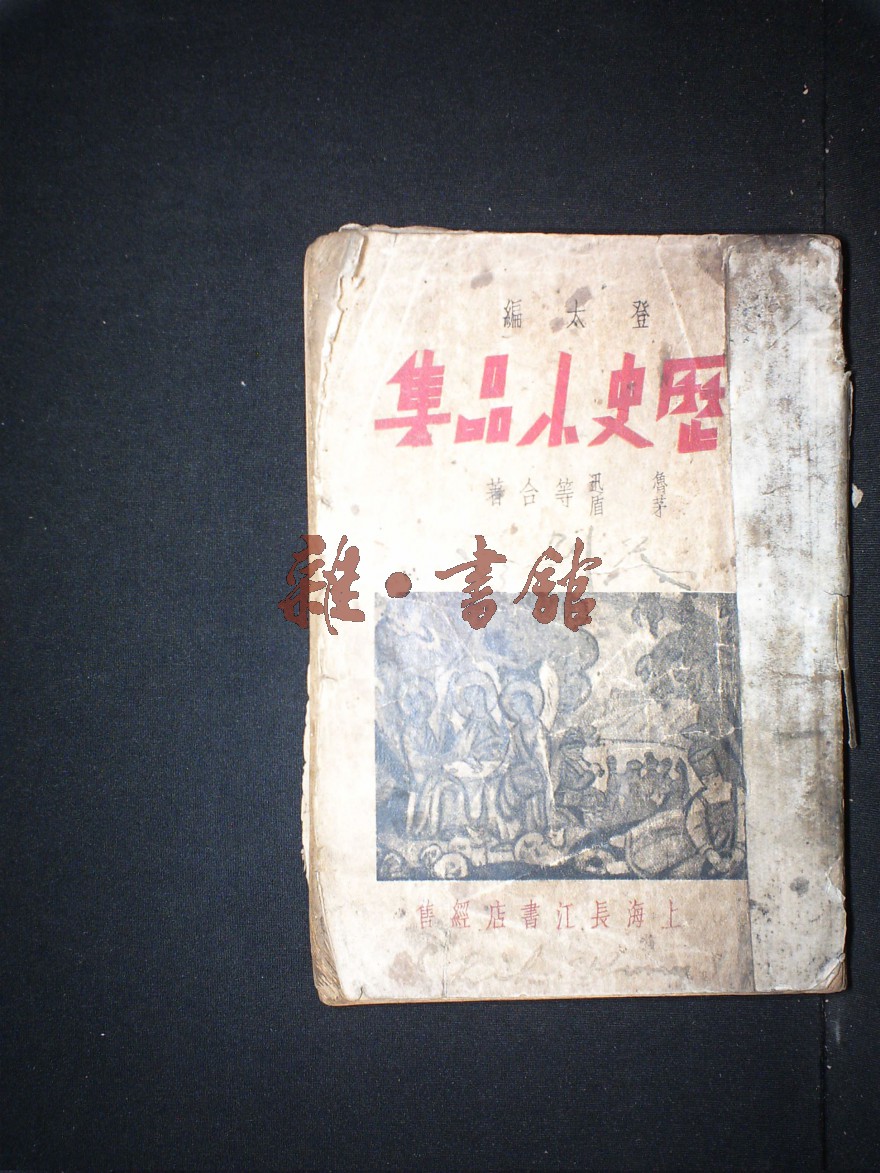 登太編
歷史小品集
魯迅
茅盾
等合著
雜·書館
上海長江書店經售